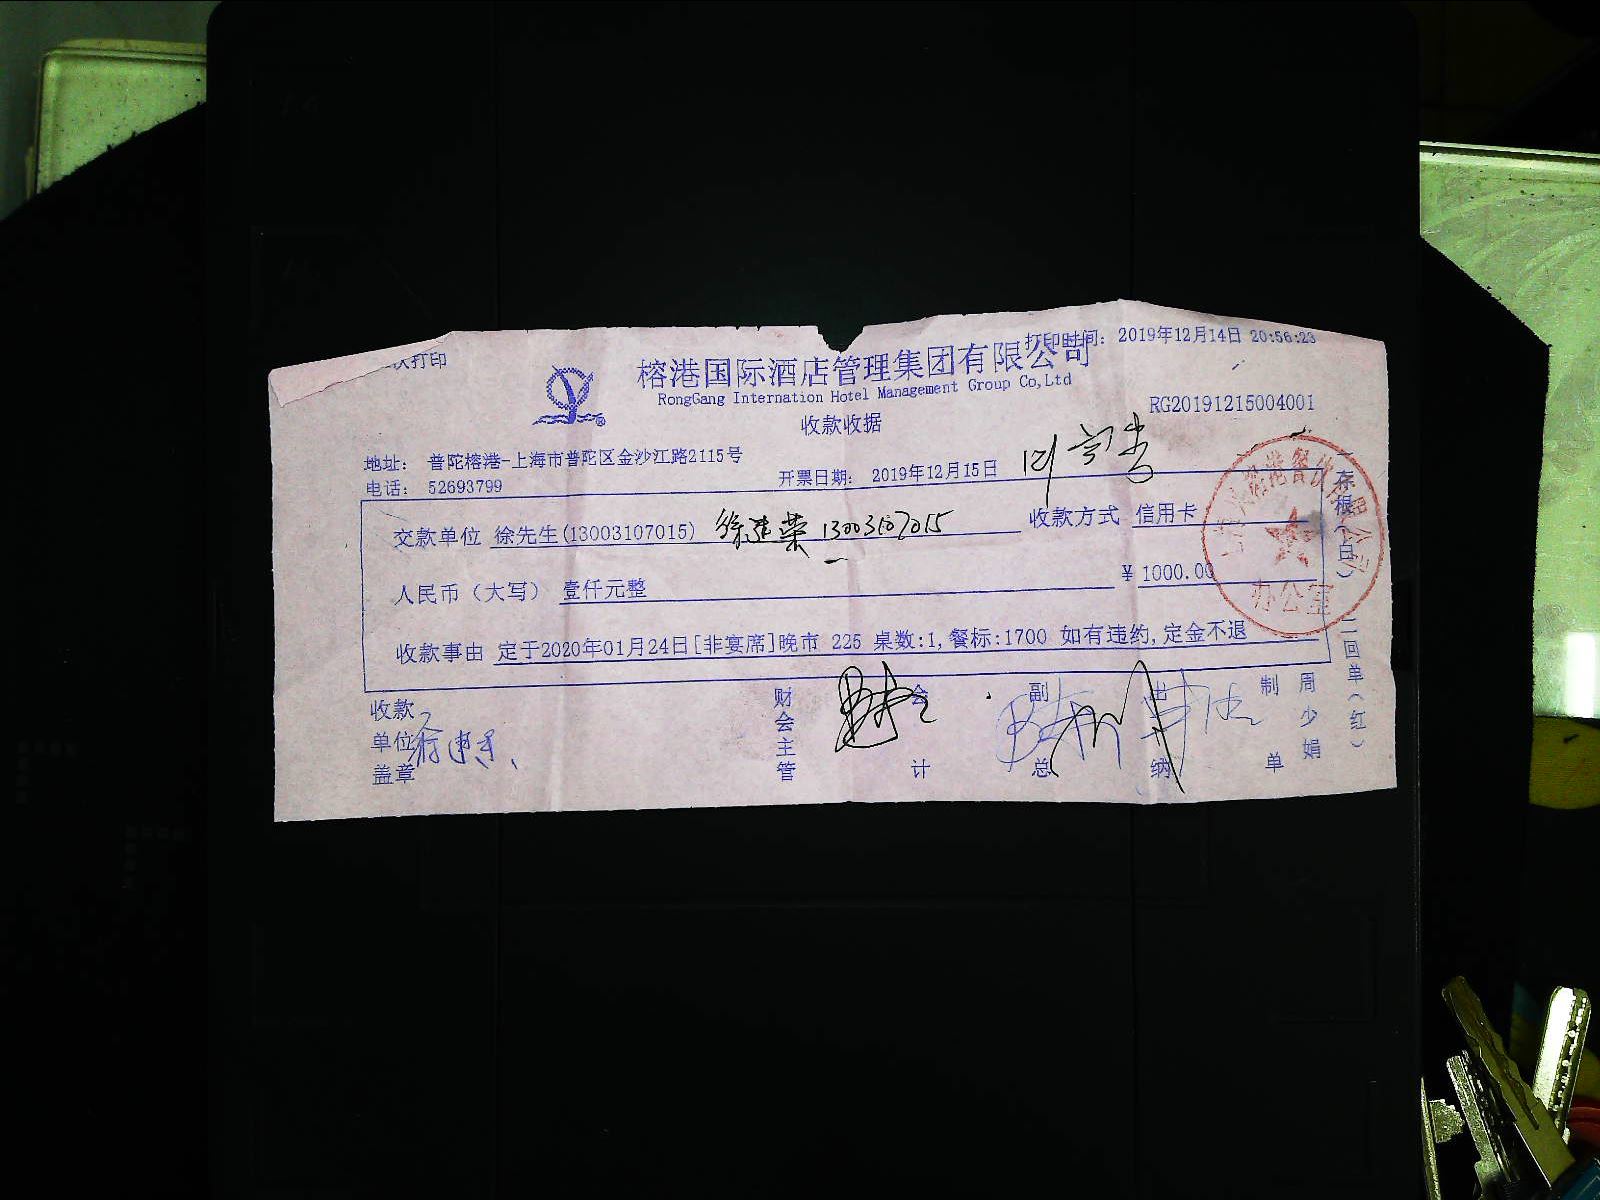 次打印
打印时间: 2019年12月14日 20:56:23
榕港国际酒店管理集团有限公司
RongGang Internation Hotel Management Group Co,Ltd
收款收据
RG20191215004001
地址: 普陀榕港-上海市普陀区金沙江路2115号
电话: 52693799
开票日期: 2019年12月15日
交款单位 徐先生(13003107015) 13003107015 收款方式 信用卡
人民币（大写） 壹仟元整 ¥ 1000.00
收款事由 定于2020年01月24日[非宴席]晚市 225 桌数:1,餐标:1700 如有违约,定金不退
收款单位盖章
财会主管
会计
副总
出纳
制单
周少娟
一存根(白)
二回单(红)
办公室